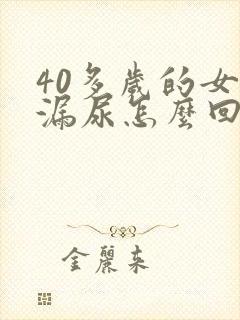 40多歲的女
漏尿怎麼回
金麗来